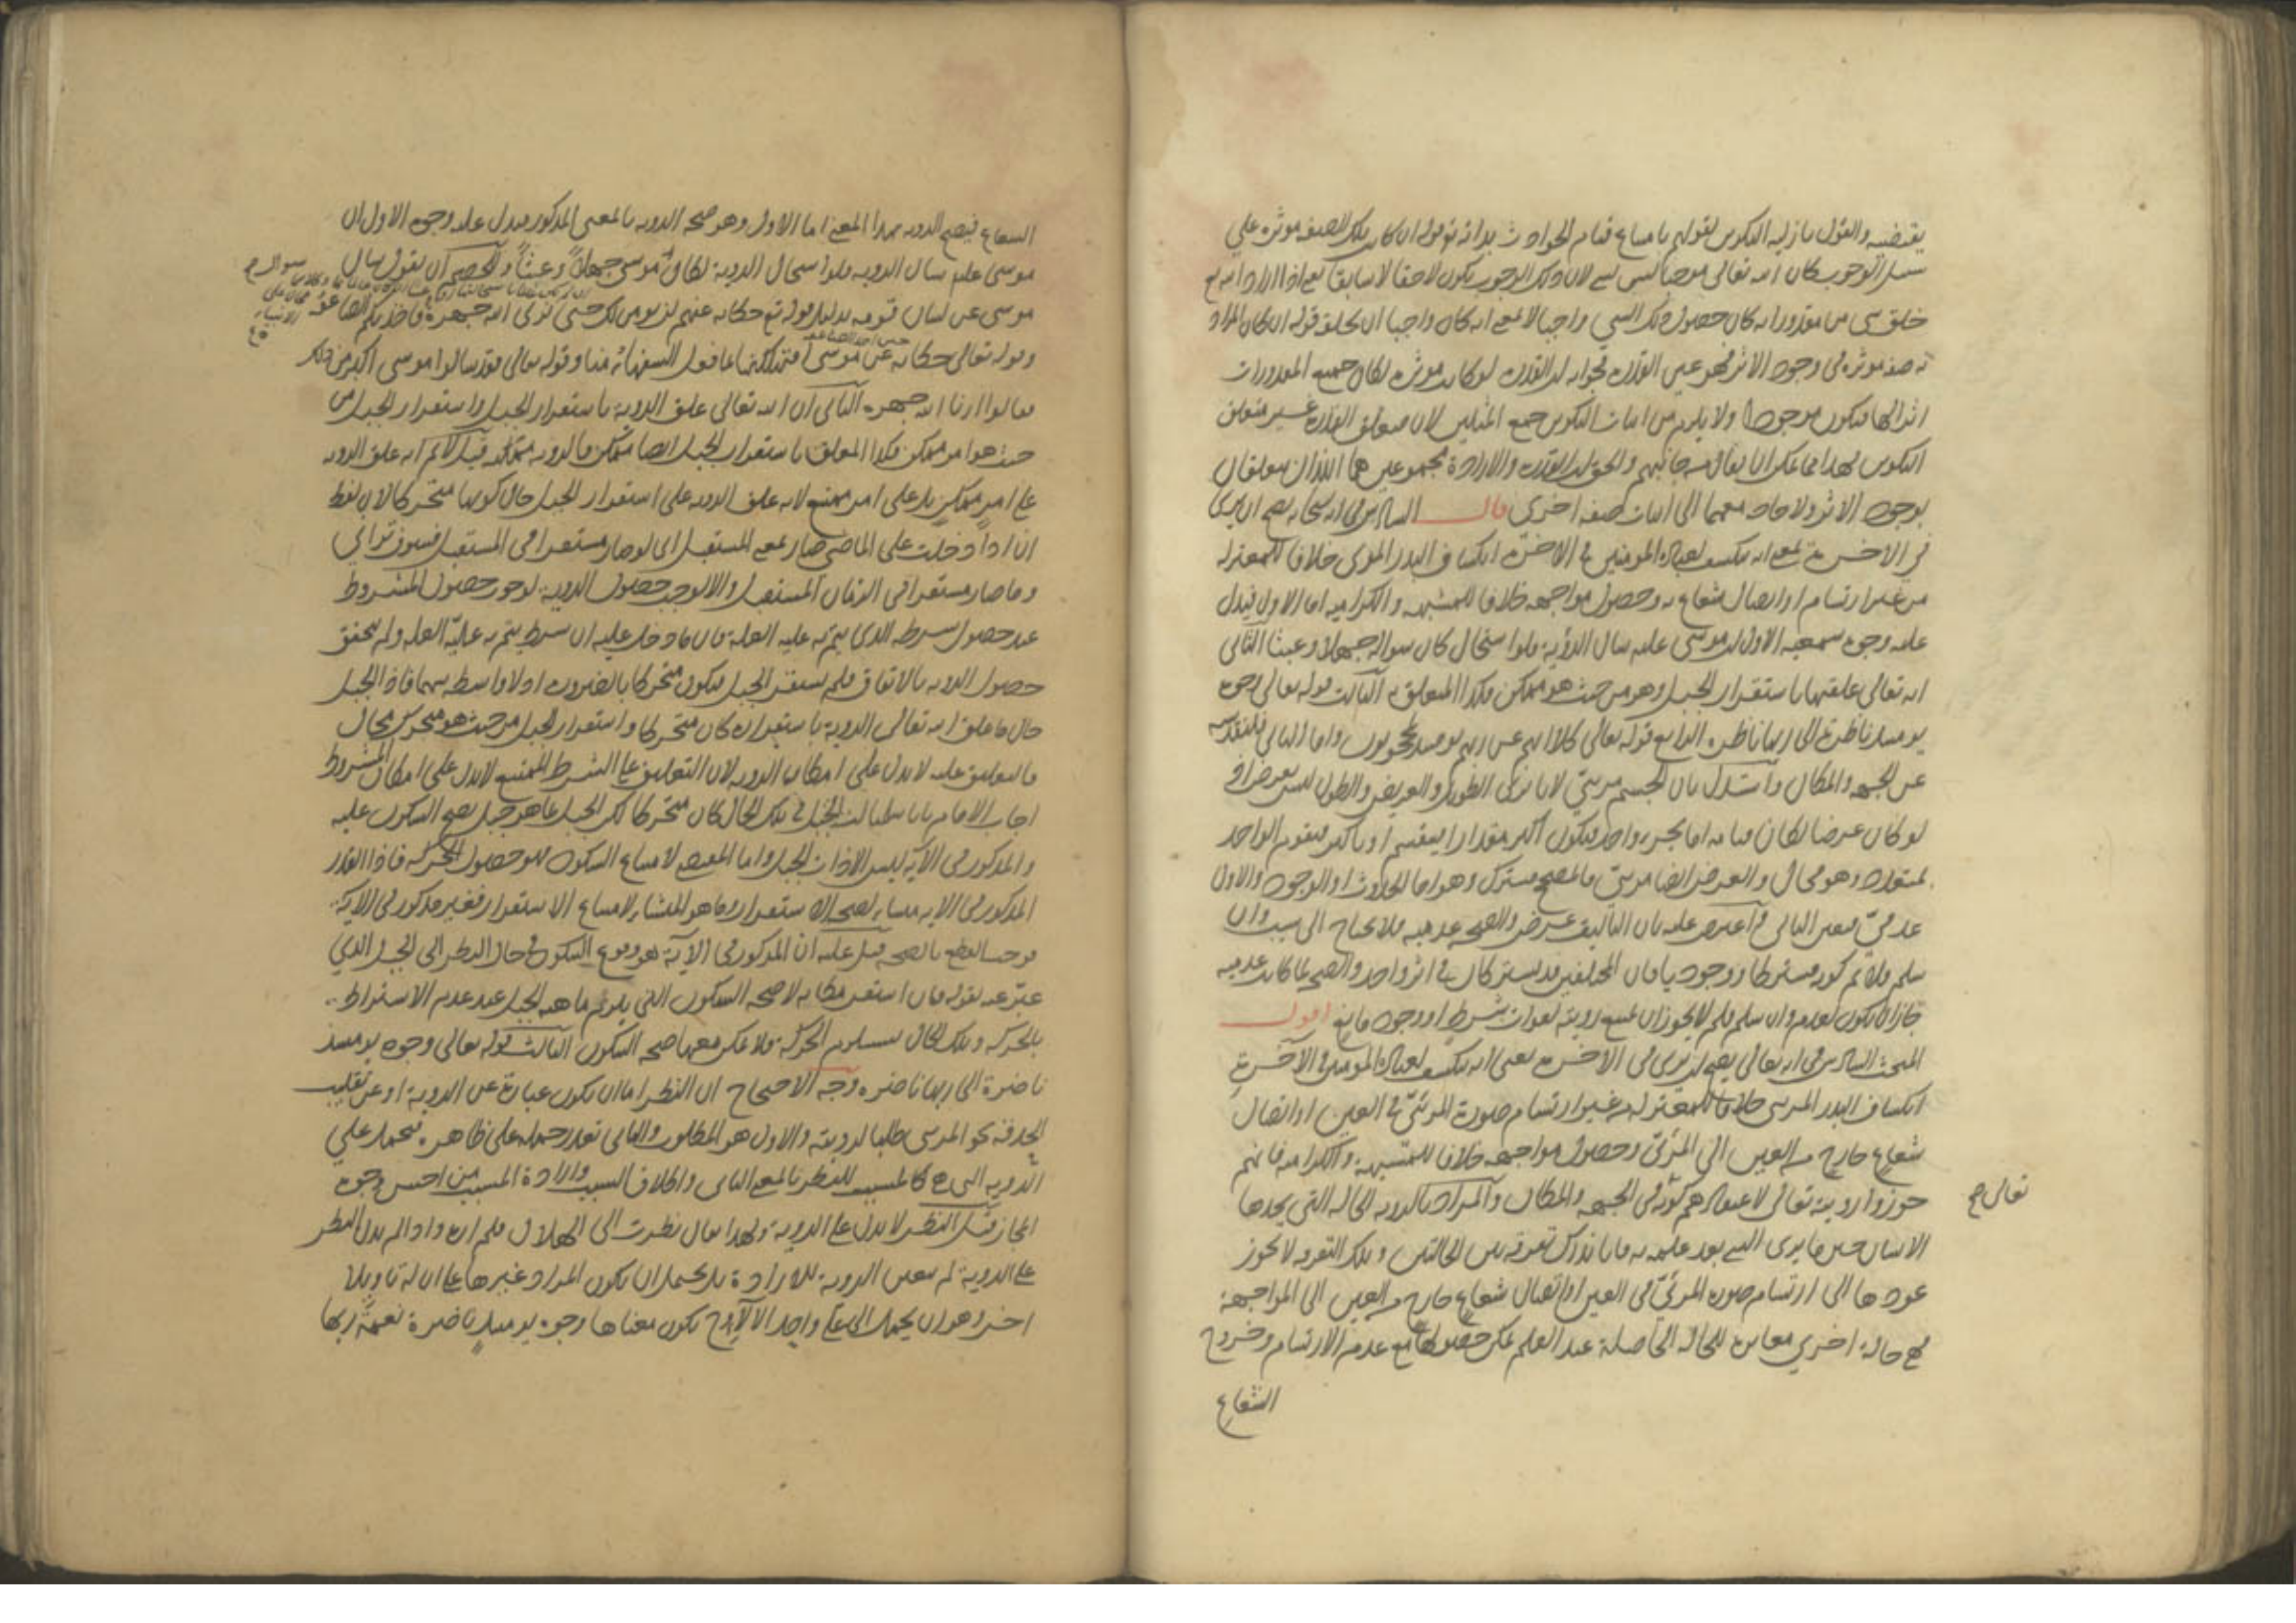 يقتضيه والقول بازلية التكوين لقولهم بامتناع قيام الحوادث بذاته تع قوله ان كانت تلك الصفة مؤثرة على
سبيل الوجوب كان الله تعالى موجبا ليس لان ذلك الوجوب يكون لاحقا لا سابقا بمعنى اذا اراد الله تع
خلق شي من مقدوراته كان حصول ذلك الشي واجبا لا بمعنى انه كان واجبا ان يخلقه قوله ان كان المراد
به صفة مؤثرة في وجود الاثر فهو عين القدرة فجوابه ان القدرة لو كانت مؤثرة لكان جميع المقدورات
اثرا لها فيكون موجودا ولا يلزم من اثبات التكوين جمع المثلين لان متعلق القدرة غير متعلق
التكوين فهذا مما يمكن ان يقال من جانبهم والحق ان القدرة والارادة مجموعين هما اللذان يتعلقان
بوجود الاثر ولا حاجة معهما الى اثبات صفة اخرى قال السادس في انه سبحانه يصح ان يرى
في الاخرة بمعنى انه ينكشف لعباده المومنين في الاخرة انكشاف البدر المرئي خلافا للمعتزلة
من غير ارتسام او اتصال شعاع به وحصول مواجهة خلافا للمشبهة والكرامية اما الاول فيدل
عليه وجوه سمعية الاول ان موسى عليه سال الرؤية فلو استحال كان سواله جهلا وعبثا الثاني
انه تعالى علقها باستقرار الجبل وهو من حيث هو ممكن فكذا المعلق به الثالث قوله تعالى وجوه
يومئذ ناضرة الى ربها ناظرة الرابع قوله تعالى كلا انهم عن ربهم يومئذ لمحجوبون واما الثاني فلتقدسه
عن الجهة والمكان واستدل بان الجسم مرئي لانا نرى الطويل والعريض والطول ليس بعرض اذ
لو كان عرضا لكان قيامه اما بجزء واحد فيكون اكبر مقدارا فينقسم او باكثر فيقوم الواحد
بمتعدد وهو محال والعرض ايضا مرئي فالمصحح مشترك وهو اما الحدوث او الوجود والاول
عدمي فتعين الثاني واعترض عليه بان التاليف عرض والصحة عدمية فلا تحتاج الى سبب وان
سلم فلا ثم كونه مشتركا ووجوديا فان المختلفين قد يشتركان في اثر واحد والصحة لما كانت عدمية
جاز ان يكون لعدم وان سلم فلم لا يجوز ان يمتنع رؤيته لفوات شرط او وجود مانع اقول
المبحث السادس في انه تعالى يصح ان يرى في الاخرة بمعنى انه ينكشف لعباده المومنين في الآخرة
انكشاف البدر المرئي خلافا للمعتزلة من غير ارتسام صورة المرئي في العين او اتصال
شعاع خارج من العين الى المرئي وحصول مواجهة خلافا للمشبهة والكرامية فانهم
جوزوا رؤيته تعالى لاعتقادهم كونه في الجهة والمكان والمراد بالرؤية الحالة التي يجدها
تعالى صح
الانسان حين ما يرى الشي بعد علمه به فانا ندرك تفرقة بين الحالتين وتلك التفرقة لا يجوز
عودها الى ارتسام صورة المرئي في العين او اتصال شعاع خارج من العين الى المواجهة
فهي حالة اخرى مغايرة للحالة الحاصلة عند العلم يمكن حصولها مع عدم الارتسام وخروج
الشعاع
الشعاع فيصح الرؤية بهذا المعنى اما الاول وهو صحة الرؤية بالمعنى المذكور فيدل عليه وجوه الاول ان
موسى عليه سال الرؤية فلو استحال الرؤية لكان موسى جهلا وعبثا وللخصم ان يقول سال
سوال صح
موسى عن لسان قومه بدليل قوله تع حكاية عنهم لن نومن لك حتى نرى الله جهرة فاخذتكم الصاعقة
محال على الانبياء
وقوله تعالى حكاية عن موسى اتهلكنا بما فعل السفهاء منا وقوله تعالى فقد سالوا موسى اكبر من ذلك
حين اخذ الصاعقة
فقالوا ارنا الله جهرة الثاني ان الله تعالى علق الرؤية باستقرار الجبل واستقرار الجبل من
حيث هو امر ممكن فكذا المعلق باستقرار الجبل ايضا ممكن فالرؤية ممكنة قيل لا ثم انه علق الرؤية
على امر ممكن بل على امر ممتنع لانه علق الرؤية على استقرار الجبل حال كونها متحركا لان لفظ
ان اذا دخلت على الماضي صار بمعنى المستقبل اي لو صار مستقرا في المستقبل فسوف تراني
وما صار مستقرا في الزمان المستقبل والا لوجب حصول الرؤية لوجوب حصول المشروط
عند حصول شرطه الذي يتم به علية العلة فان ما دخل عليه ان شرط يتم به علية العلة ولم يتحقق
حصول الرؤية بالاتفاق فلم يستقر الجبل فيكون متحركا بالضرورة اذ لا واسطة بينهما فاذا الجبل
حال ما علق الله تعالى الرؤية باستقراره كان متحركا واستقرار الجبل من حيث هو متحرك محال
فالتعليق عليه لا يدل على امكان الرؤية لان التعليق على الشرط الممتنع لا يدل على امكان المشروط
اجاب الامام بانا سلمنا ان الجبل في تلك الحال كان متحركا لكن الجبل بما هو جبل يصح السكون عليه
والمذكور في الآية ليس الا ذات الجبل واما المقتضي لامتناع السكون فهو حصول الحركة فاذا القدر
المذكور في الاية منشاء لصحة الاستقرار وما هو المنشاء لامتناع الاستقرار فغير مذكور في الآية
فوجب القطع بالصحة قيل عليه ان المذكور في الآية هو وقوع السكون في حال النظر الى الجبل الذي
عبر عنه بقوله فان استقر مكانه لا صحة السكون التي يلزم ماهية الجبل عند عدم الاشتراط
بالحركة وتلك الحال يستلزم الحركة فلا يمكن معها صحة السكون الثالث قوله تعالى وجوه يومئذ
ناضرة الى ربها ناضره وجه الاحتجاج ان النظر اما ان يكون عبارة عن الرؤية او عن تقليب
الحدقة نحو المرئي طلبا لرؤيته والاول هو المطلوب والثاني تعذر حمله على ظاهره فيحمل على
الرؤية التي هي كالمسبب للنظر بالمعنى الثاني واطلاق السبب وارادة المسبب من احسن وجوه
المجاز قيل النظر لا يدل على الرؤية ولهذا يقال نظرت الى الهلال فلم اره واذا لم يدل النظر
على الرؤية لم يتعين الرؤية للارادة بل يحتمل ان يكون المراد غيرها على ان له تاويلا
اخر وهو ان يحمل الى على واحد الآلاء ح يكون معناها وجوه يومئذ ناضرة نعمة ربها